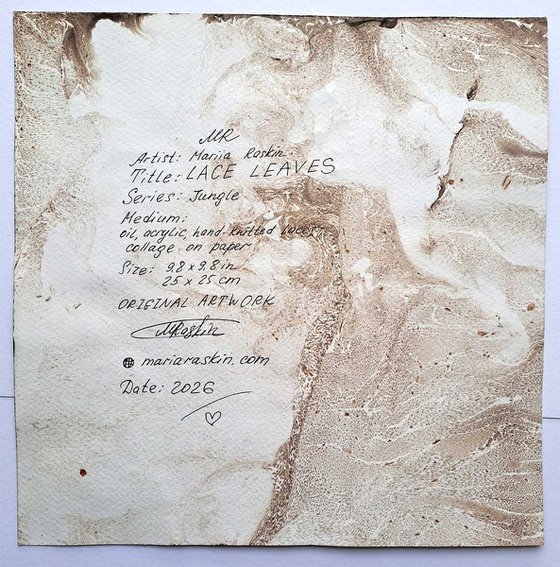 MR
Artist: Mariia Raskin.
Title: LACE LEAVES
Series: Jungle
Medium:
oil, acrylic, hand-knitted laces,
collage on paper
Size: 9.8 x 9.8 in
25 x 25 cm
ORIGINAL ARTWORK
MRaskin
mariaraskin.com
Date: 2026